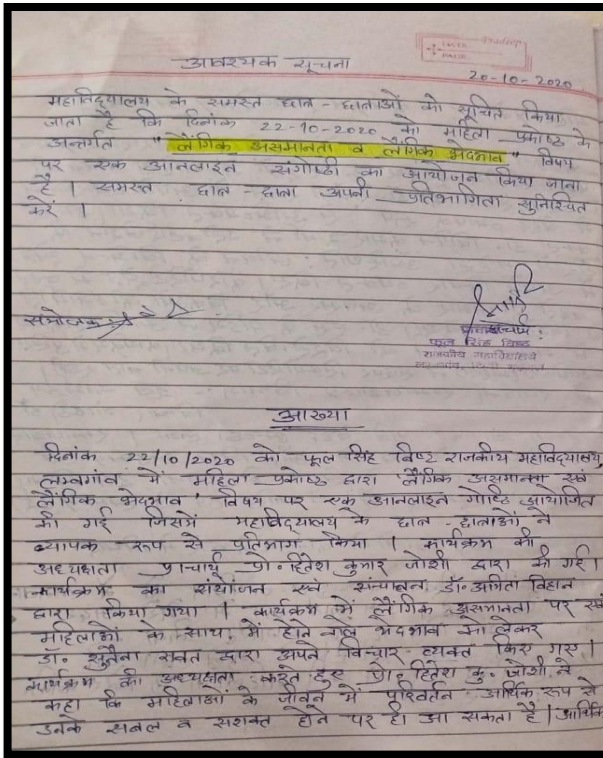 आवश्यक सूचना
20-10-2020
महाविद्यालय के समस्त छात्र-छात्राओं को सूचित किया
जाता है कि दिनांक 22-10-2020 को महिला प्रकोष्ठ के
अन्तर्गत "लैंगिक असमानता व लैंगिक भेदभाव" विषय
पर एक आनलाइन संगोष्ठी का आयोजन किया जाना
है। समस्त छात्र-छात्रा अपनी प्रतिभागिता सुनिश्चित
करें।
संयोजक
फूल सिंह बिष्ट
राजकीय महाविद्यालय
आख्या
दिनांक 22/10/2020 को फूल सिंह बिष्ट राजकीय महाविद्यालय,
लम्बगांव में महिला प्रकोष्ठ द्वारा लैंगिक असमानता एवं
लैंगिक भेदभाव' विषय पर एक आनलाइन गोष्ठि आयोजित
की गई जिसमें महाविद्यालय के छात्र-छात्राओं ने
व्यापक रूप से प्रतिभाग किया। कार्यक्रम की
अध्यक्षता प्राचार्य प्रो. हितेश कुमार जोशी द्वारा की गई।
कार्यक्रम का संयोजन एवं संचालन डॉ. अमिता बिहान
द्वारा किया गया। कार्यक्रम में लैंगिक असमानता पर एवं
महिलाओं के साथ में होने वाले भेदभाव को लेकर
डॉ. सुनैना रावत द्वारा अपने विचार व्यक्त किए गए।
कार्यक्रम की अध्यक्षता करते हुए प्रो. हितेश कु. जोशी ने
कहा कि महिलाओं के जीवन में परिवर्तन आर्थिक रूप से
उनके सबल व सशक्त होने पर ही आ सकता है। आर्थिक